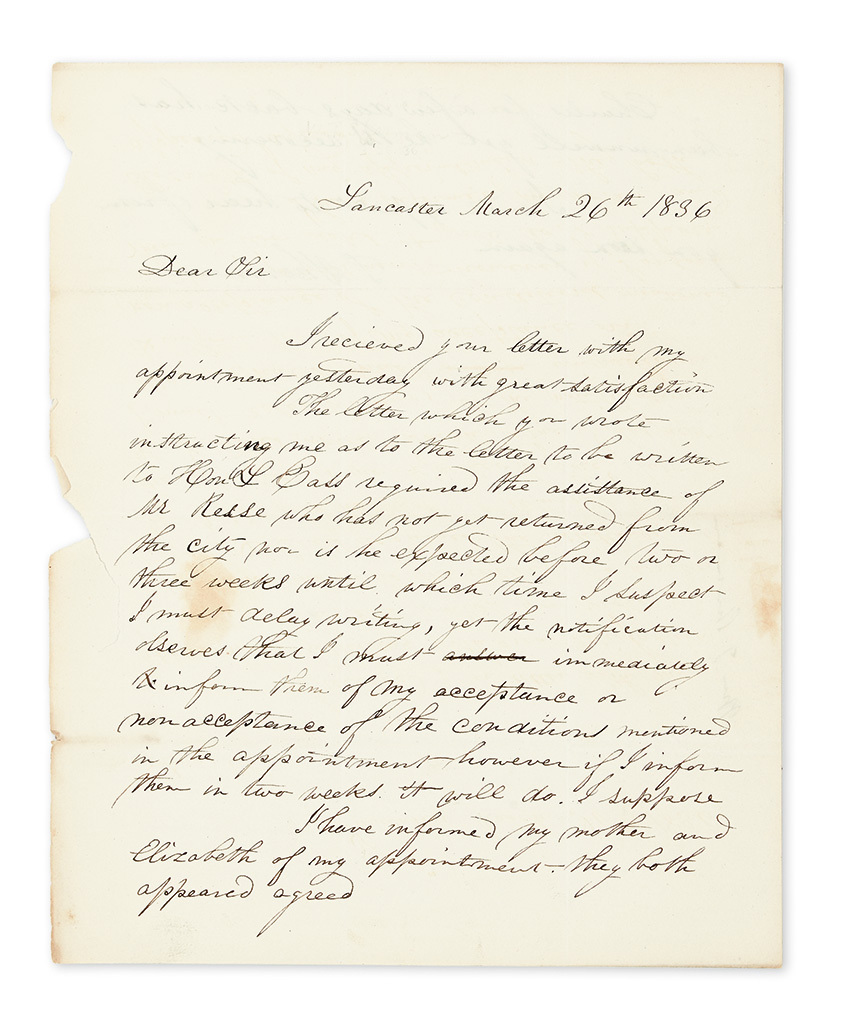 Lancaster March 26th 1836
Dear Sir
I recieved your letter with my
appointment yesterday with great satisfaction
The letter which you wrote
instructing me as to the letter to be written
to Hon L Cass required the assistance of
Mr Reese who has not yet returned from
the city nor is he expected before two or
three weeks until which time I suspect
I must delay writing, yet the notification
observes that I must answer immediately
& inform them of my acceptance or
nonacceptance of the conditions mentioned
in the appointment however if I inform
them in two weeks it will do. I suppose
I have informed my mother and
Elizabeth of my appointment. they both
appeared agreed